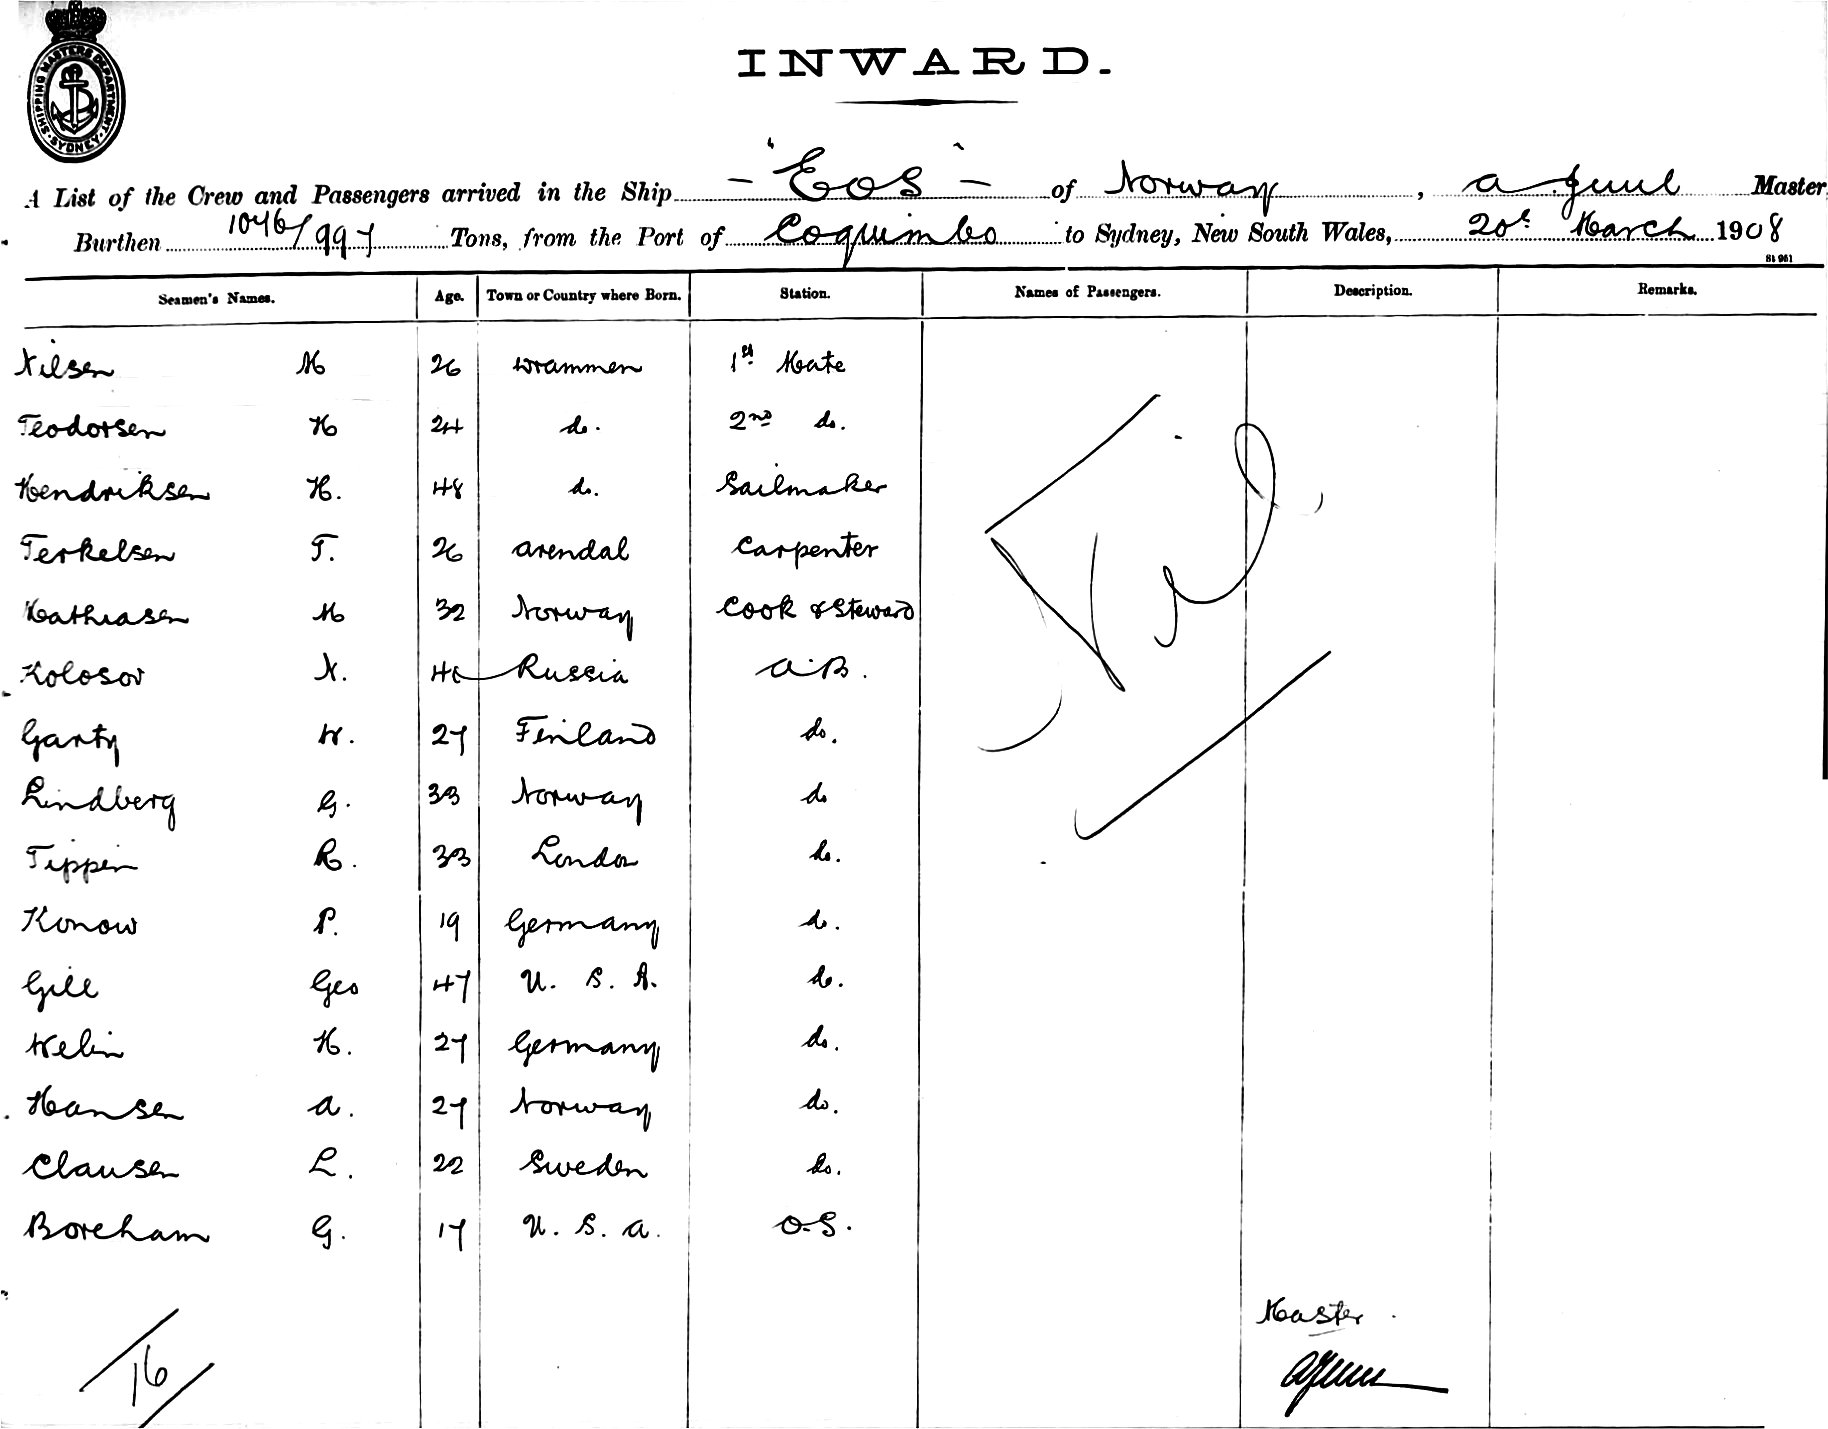 SHIPPING MASTERS DEPARTMENT · SYDNEY ·
INWARD.
A List of the Crew and Passengers arrived in the Ship - "Eos" - of Norway, A Juul Master
Burthen 1046/997 Tons, from the Port of Coquimbo to Sydney, New South Wales, 20th March 1908
Seamen's Names. Age. Town or Country where Born. Station. Names of Passengers. Description. Remarks.
Nilsen M 26 Drammen 1st Mate
Teodorsen H 24 do. 2nd do.
Hendriksen H. 48 do. Sailmaker
Terkelsen T. 26 Arendal Carpenter
Mathiasen M 32 Norway Cook & Steward
Kolosov N. Russia A.B.
Garty W. 27 Finland do.
Lindberg G. 33 Norway do
Tippin R. 33 London do.
Konow P. 19 Germany do.
Gill Geo 47 U. S. A. do.
Welin H. 27 Germany do.
Hansen A. 27 Norway do.
Clausen L. 22 Sweden do.
Boreham G. 17 U. S. A. O.S.
Nil
Master
AJuul
16